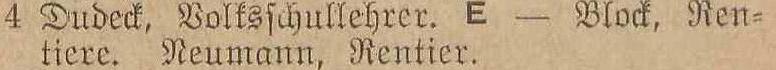 4 Dudeck, Volksschullehrer. E — Block, Ren-
tiere. Neumann, Rentier.